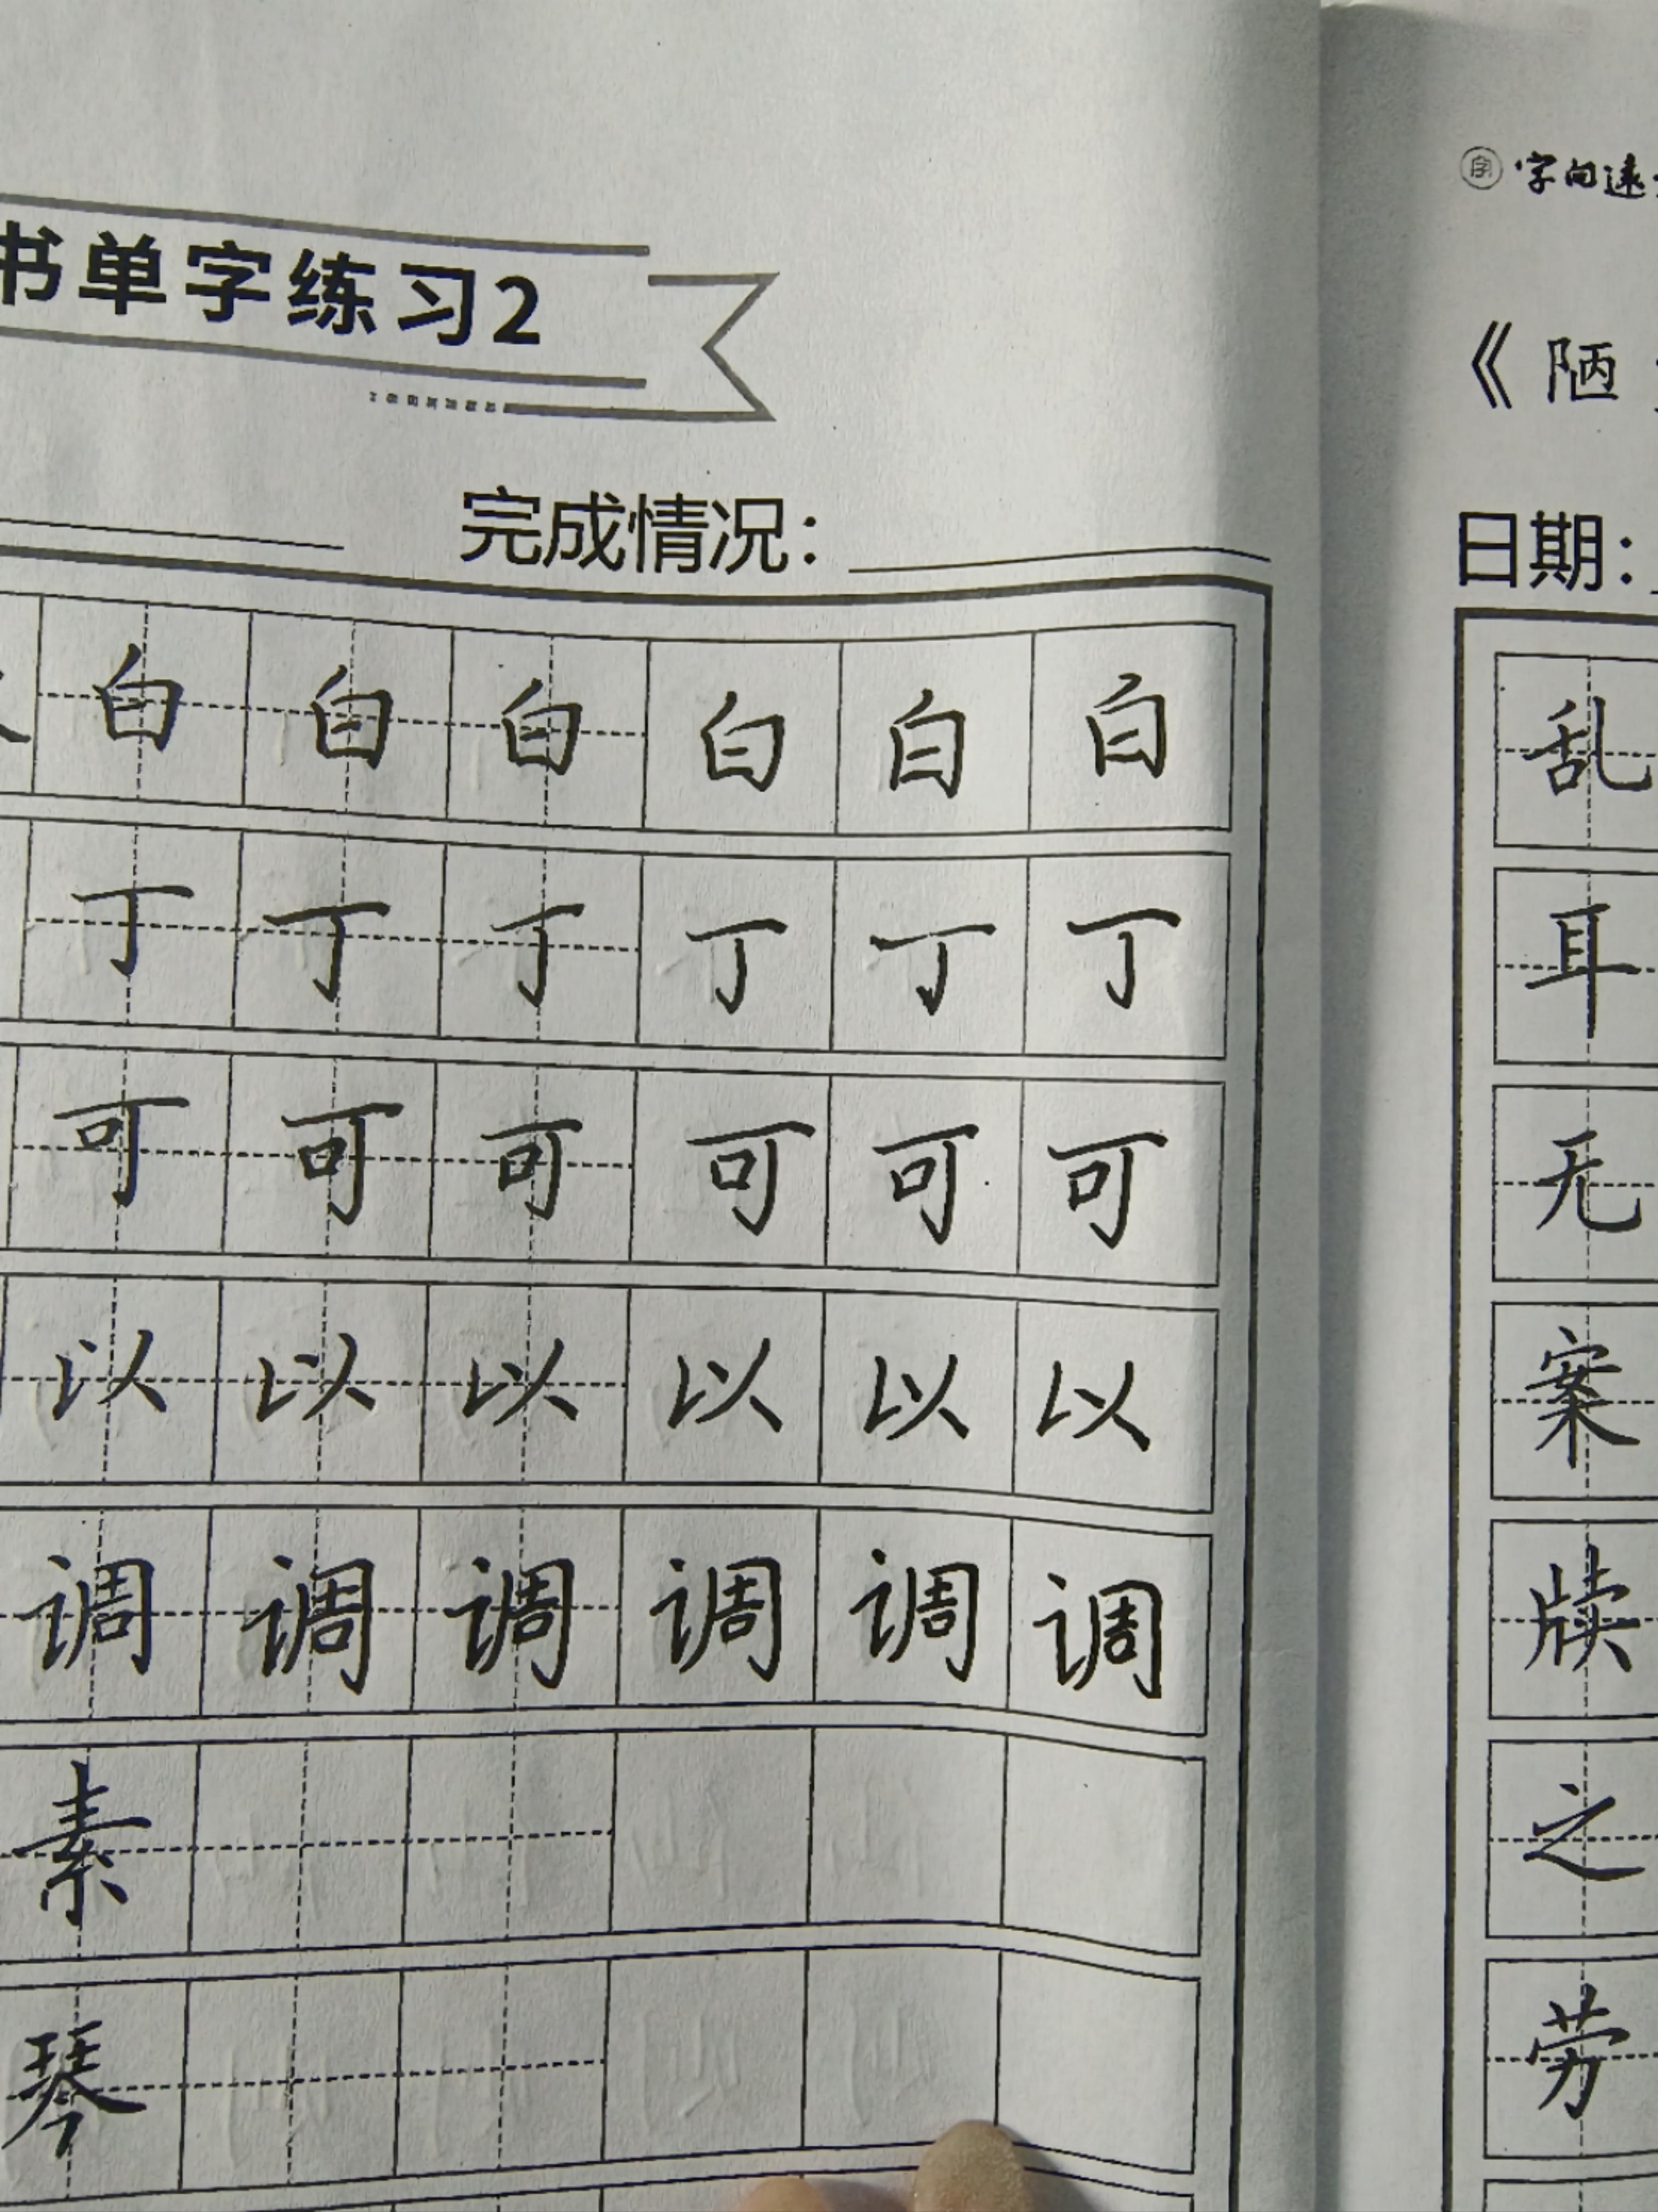 书单字练习2
完成情况：
白 白 白 白 白 白
丁 丁 丁 丁 丁 丁
可 可 可 可 可 可
以 以 以 以 以 以
调 调 调 调 调 调
素
琴
字 字向远
《陋
日期：
乱
耳
无
案
牍
之
劳